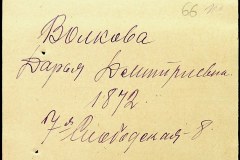 66
Волкова
Дарья Дмитриевна
1872
7я Слободская - 8.